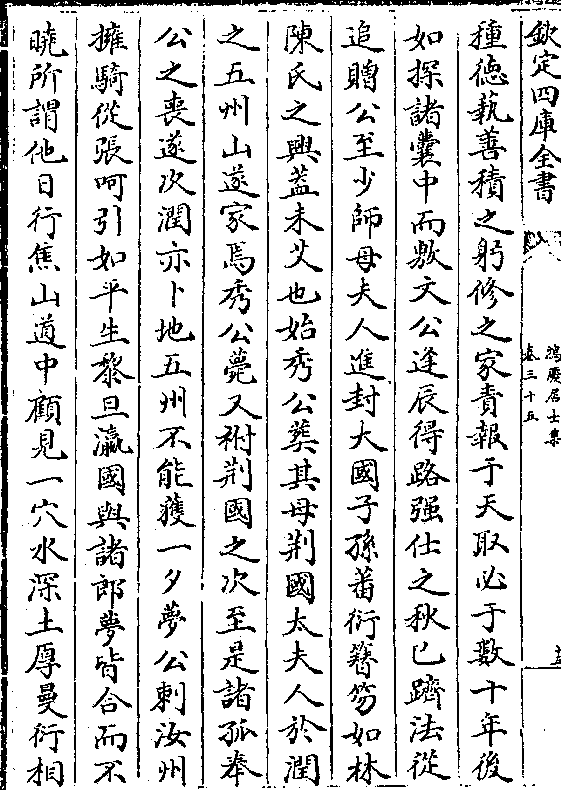 欽定四庫全書
鴻慶居士集
卷三十五
種德執善積之躬修之家責報于天取必于數十年後
如探諸囊中而敷文公逢辰得路强仕之秋已躋法從
追贈公至少師母夫人進封大國子孫蕃衍簪笏如林
陳氏之興蓋未艾也始秀公葬其母荆國太夫人於潤
之五州山遂家焉秀公薨又祔荆國之次至是諸孤奉
公之喪遂次潤亦卜地五州不能獲一夕夢公刺汝州
擁騎從張呵引如平生黎旦瀛國與諸郎夢皆合而不
曉所謂他日行焦山道中顧見一穴水深土厚曼衍相